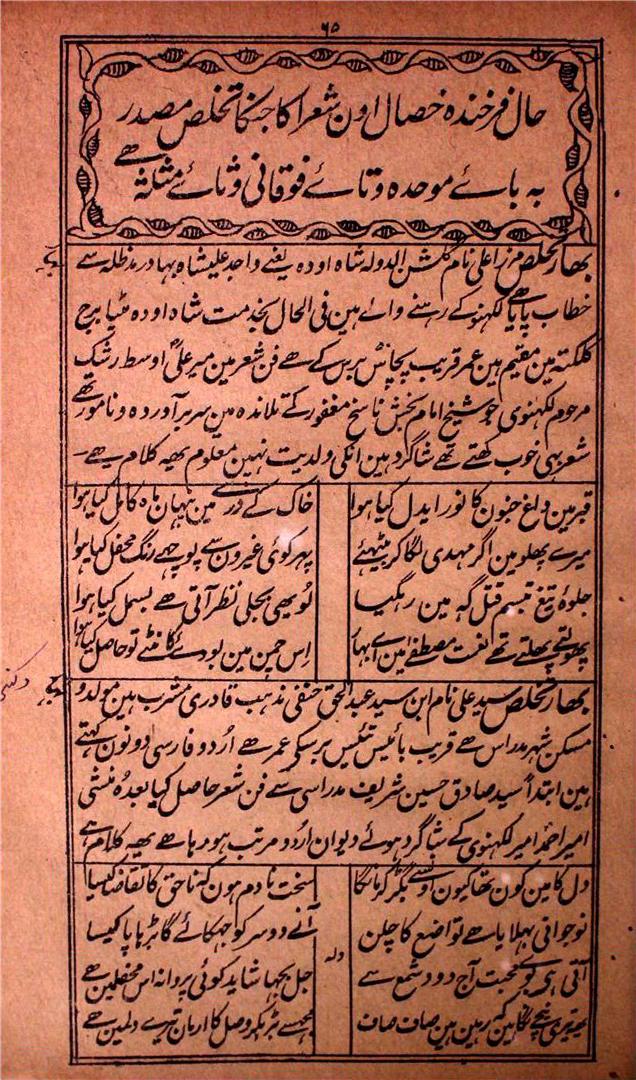 ۶۵
حال فرخندہ خصال اون شعرا کا جنکا تخلص مصدر
بہ بائے موحدہ و تائے فوقانی و ثائے مثلثہ ھے
بھار تخلص مرزا علی نام گلشن الدولہ شاہ اودہ یعنے واجد علیشاہ بہادر مدظلہ سے
خطاب پایا ھے لکہنو کے رہنے والے ہین فی الحال بخدمت شاہ اودہ مٹیا برج
کلکتہ مین مقیم ہین عمر قریب پچاس برس کے ھے فن شعر مین میر علی اوسط رشک
مرحوم لکہنوی جو شیخ امام بخش ناسخ مغفور کے تلاندہ مین سر برآوردہ و نامور تھے
شعر بہی خوب کھتے تھے شاگرد ہین انکی ولدیت نہین معلوم یھہ کلام ھے۔
قبر مین داغ جنون کا نور ایدل کیا ہوا
خاک کے ذرے مین پنہان ماہ کامل کیا ہوا
میرے پھلو مین اگر مہدی لگا کر بیٹہئے
پہر کوئی غیرون سے پوچہے رنگ محفل کیا ہوا
جلوۂ تیغ تبسم قتل گہ مین رہگیا
کوبھی بجلی نظر آتی ھے بسمل کیا ہوا
پھولتے پھلتے تھے نعت مصطفے مین اے بہار
اس چمن مین بوئے کانٹے تو حاصل کیا ہوا
بھار تخلص سید علی نام ابن سید عبد الحق حنفی مذہب قادری مشرب ہین مولد و
مسکن شہر مدراس ھے قریب بائیس تئیس برسکی عمر ھے اردو فارسی دونون کہتے
ہین ابتداً سید صادق حسین شریف مدراسی سے فن شعر حاصل کیا بعدہ منشی
امیر احمد امیر لکہنوی کے شاگرد ہوئے دیوان اردو مرتب ہو رہا ھے یھہ کلام ھے
دل کا مین کون تھا کیون اوسے بگڑ کر مانگا
سخت نادم ہون کہ ناحق کا تقاضا کیسا
نوجوانی پہلا پا ھے تواضع کا چلن
آنے دو سر کو جہکائے گا بڑہاپا کیسا
ولہ
آتی ہی بوئے محبت آج دود شمع سے
جل بجہا شاید کوئی پروانہ اس محفلمین ھے
تیری نیچی نگاہین کہہ رہین ہین صاف صاف
مجسے بڑہکر وصل کا ارمان تیرے دلمین ھے